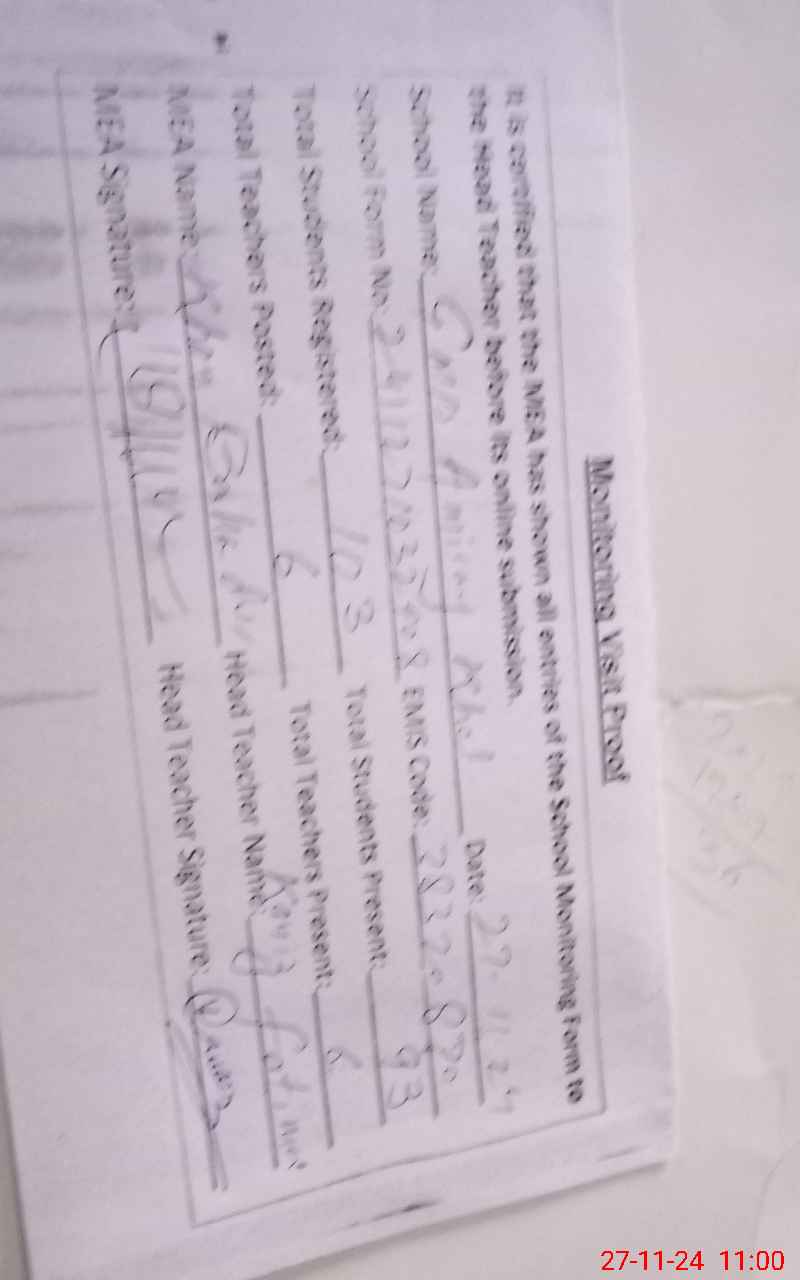 Monitoring Visit Proof
It is certified that the MEA has shown all entries of the School Monitoring Form to
the Head Teacher before its online submission.
School Name: Khel Date: 27-11-24
School Form No: EMIS Code:
Total Students Registered: 103 Total Students Present: 93
Total Teachers Posted: 6 Total Teachers Present: 6
MEA Name: Head Teacher Name: Fatima
MEA Signature: Head Teacher Signature:
27-11-24 11:00